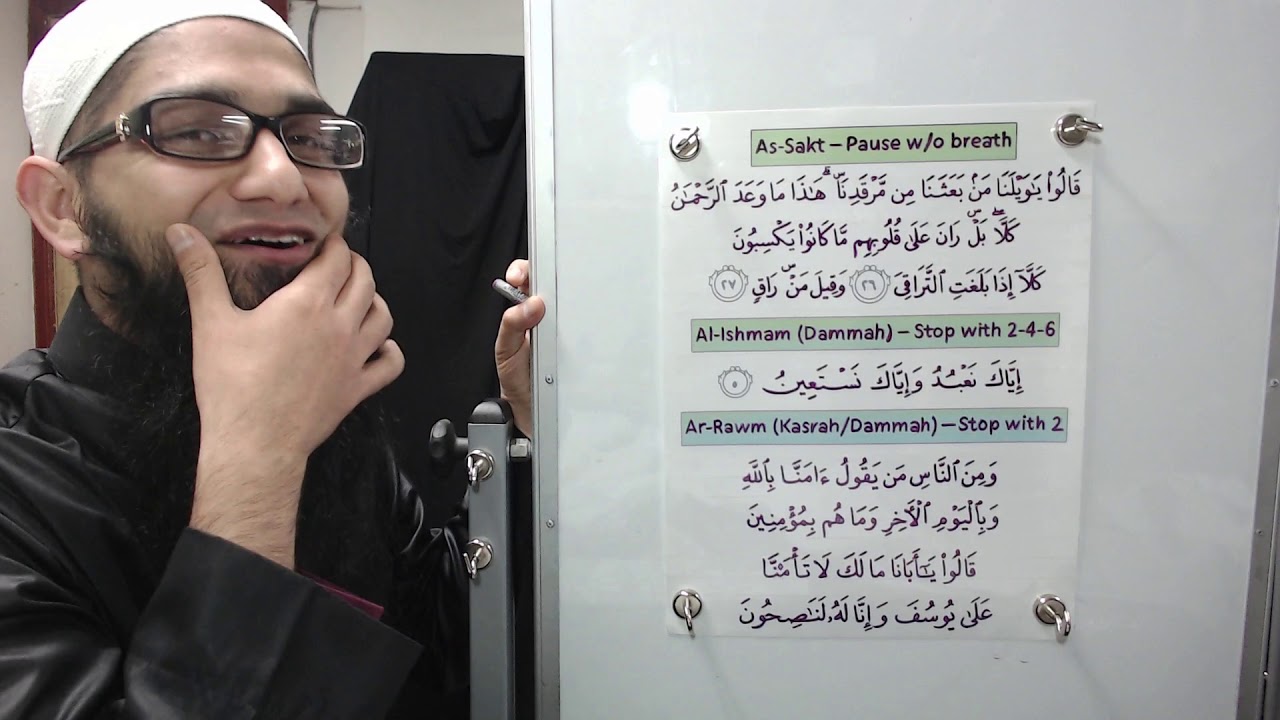 As-Sakt – Pause w/o breath
قَالُوا۟ يَـٰوَيْلَنَا مَنۢ بَعَثَنَا مِن مَّرْقَدِنَا ۜ ۗ هَـٰذَا مَا وَعَدَ ٱلرَّحْمَـٰنُ
كَلَّا ۖ بَلْ ۜ رَانَ عَلَىٰ قُلُوبِهِم مَّا كَانُوا۟ يَكْسِبُونَ
كَلَّآ إِذَا بَلَغَتِ ٱلتَّرَاقِىَ ٢٦ وَقِيلَ مَنْ ۜ رَاقٍ ٢٧
Al-Ishmam (Dammah) – Stop with 2-4-6
إِيَّاكَ نَعْبُدُ وَإِيَّاكَ نَسْتَعِينُ ٥
Ar-Rawm (Kasrah/Dammah) – Stop with 2
وَمِنَ ٱلنَّاسِ مَن يَقُولُ ءَامَنَّا بِٱللَّهِ
وَبِٱلْيَوْمِ ٱلْـَٔاخِرِ وَمَا هُم بِمُؤْمِنِينَ
قَالُوا۟ يَـٰٓأَبَانَا مَا لَكَ لَا تَأْمَ۫نَّا
عَلَىٰ يُوسُفَ وَإِنَّا لَهُۥ لَنَـٰصِحُونَ